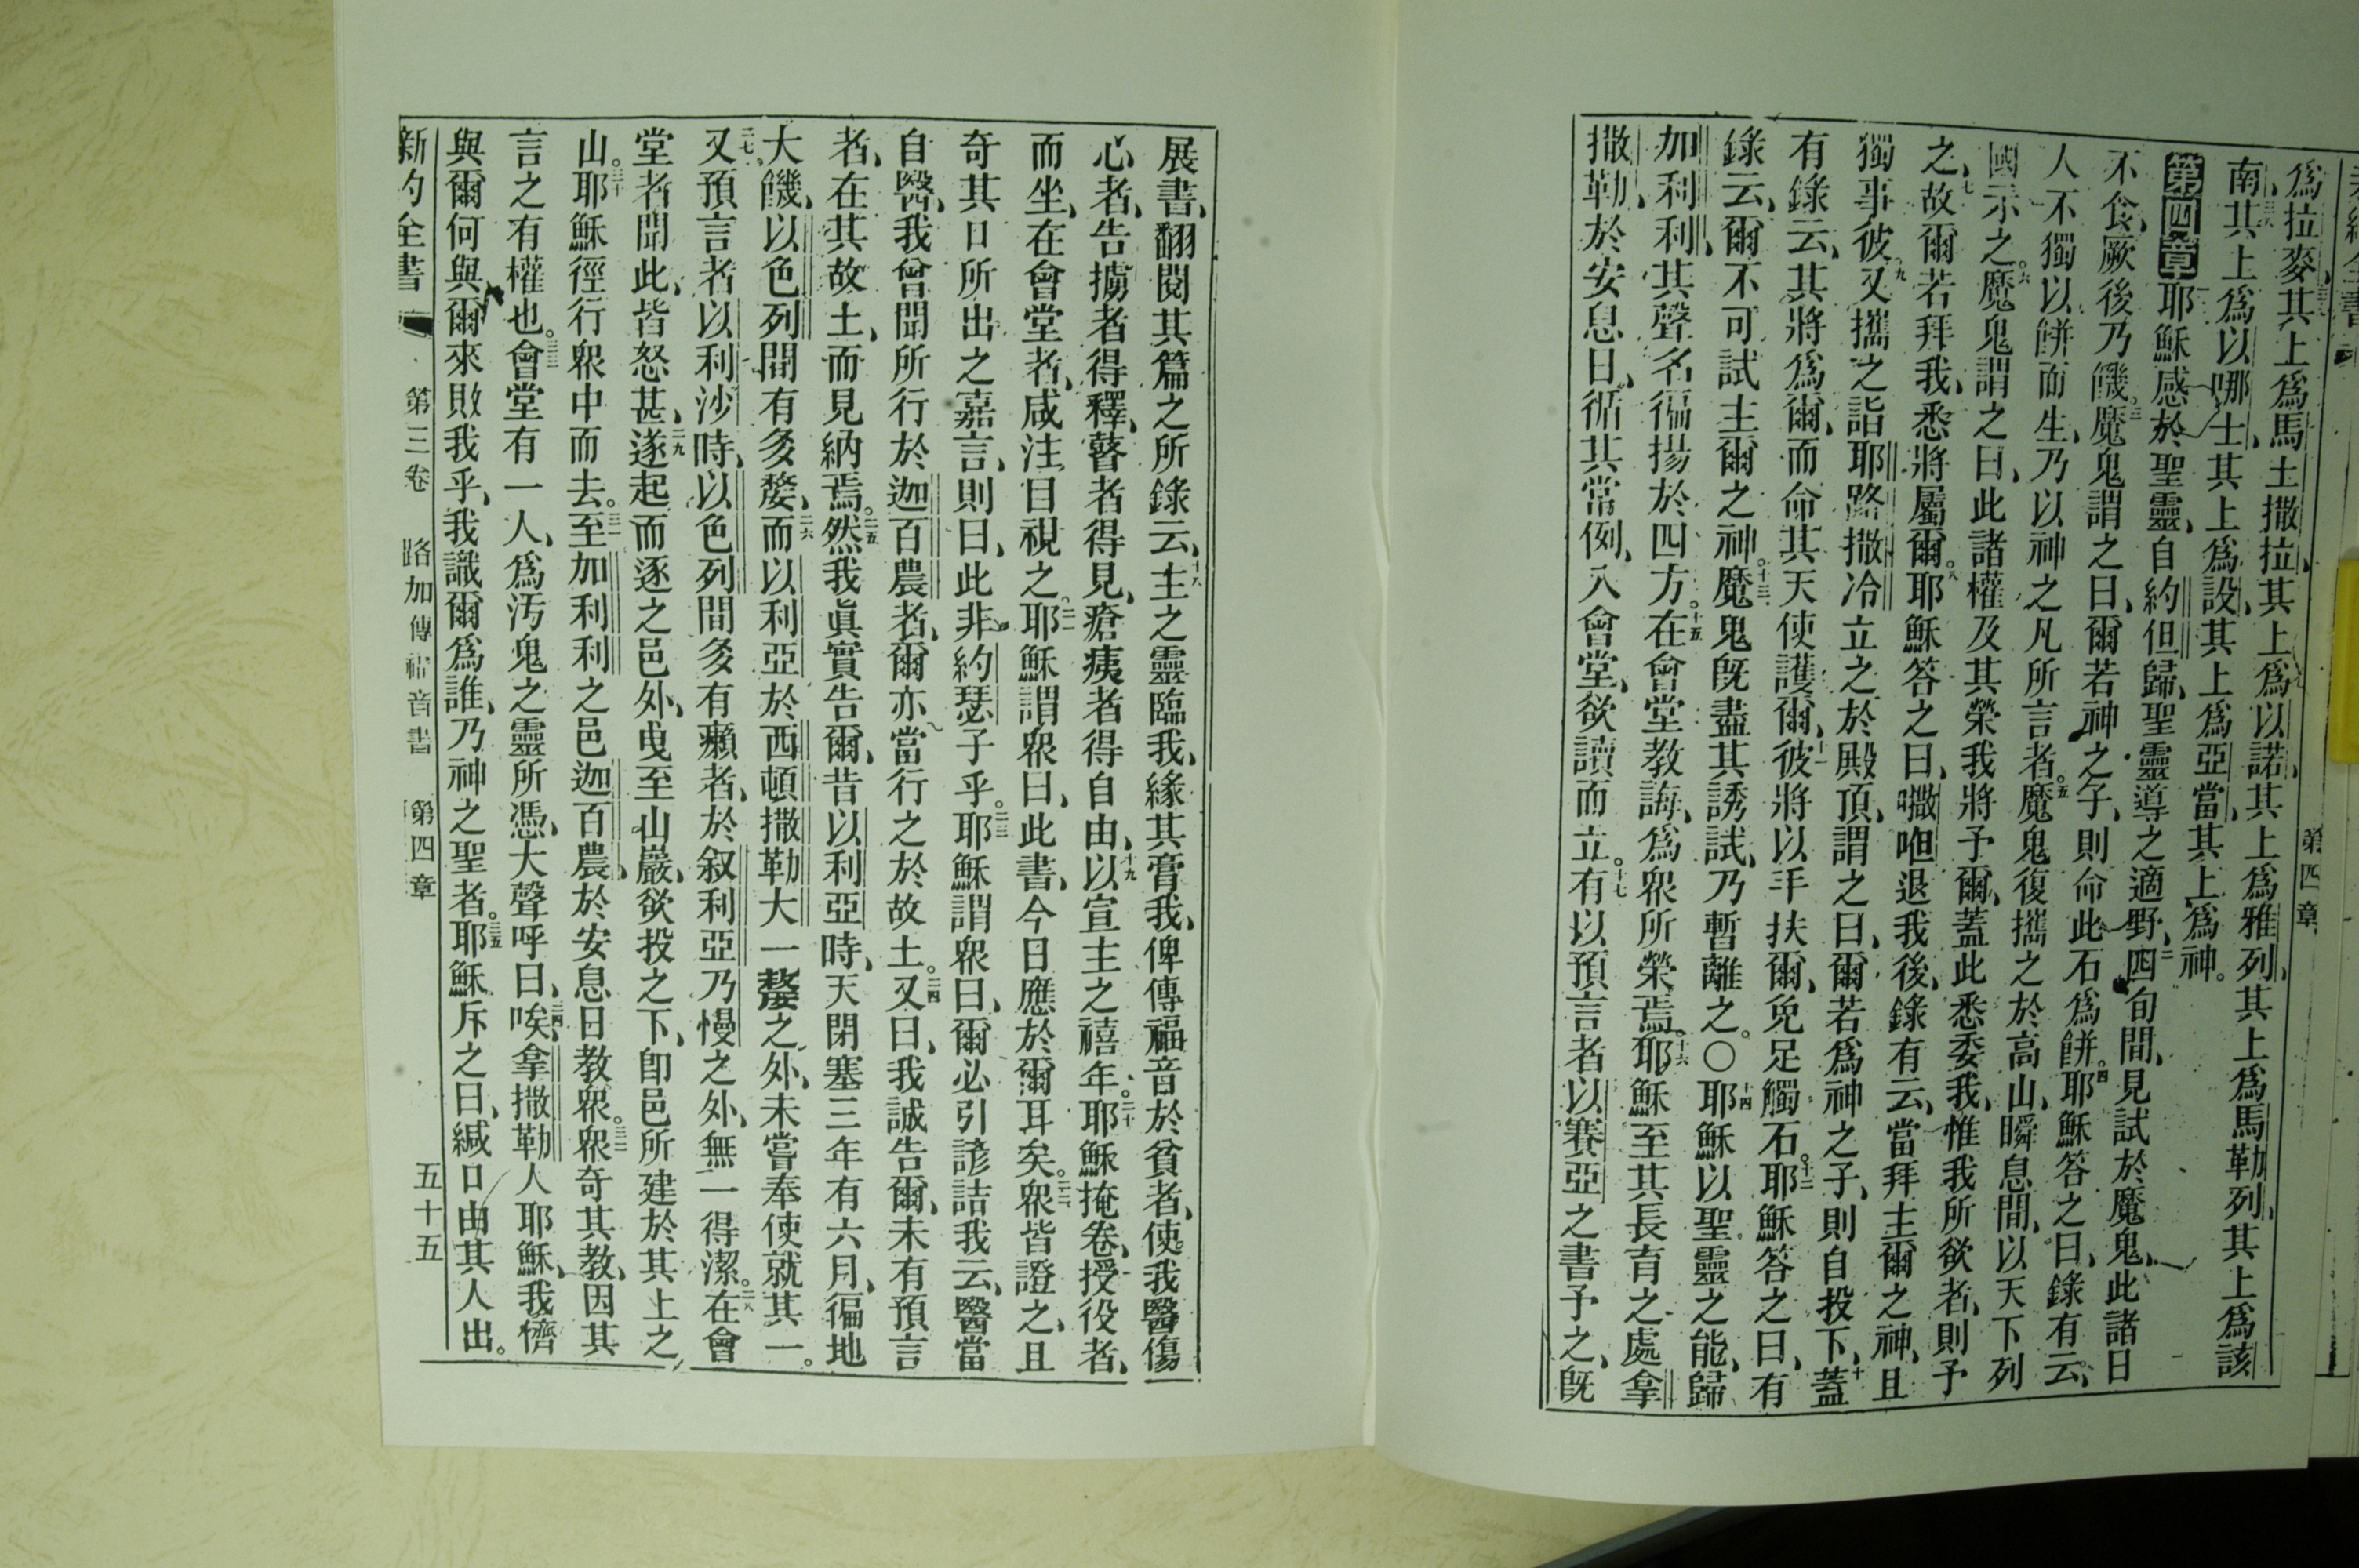 第四章
爲拉麥、其上爲馬土撒拉、其上爲以諾、其上爲雅列、其上爲馬勒列、其上爲該
南、其上爲以哪士、其上爲設、其上爲亞當、其上爲神。
第四章 耶穌感於聖靈、自約但歸、聖靈導之適野、二四旬間、見試於魔鬼、此諸日
不食、厥後乃饑。三魔鬼謂之曰、爾若神之子、則命此石爲餅。四耶穌答之曰、錄有云、
人不獨以餅而生、乃以神之凡所言者。五魔鬼復攜之於高山、瞬息間、以天下列
國示之。六魔鬼謂之曰、此諸權及其榮我將予爾、蓋此悉委我、惟我所欲者、則予
之、七故爾若拜我、悉將屬爾。八耶穌答之曰、㗓呾退我後、錄有云、當拜主爾之神、且
獨事彼。九又攜之詣耶路撒冷立之於殿頂、謂之曰、爾若爲神之子、則自投下、十蓋
有錄云、其將爲爾、而命其天使護爾、十一彼將以手扶爾、免足觸石。十二耶穌答之曰、有
錄云、爾不可試主爾之神。十三魔鬼旣盡其誘試、乃暫離之。〇十四耶穌以聖靈之能、歸
加利利、其聲名徧揚於四方。十五在會堂教誨、爲衆所榮焉。十六耶穌至其長育之處拿
撒勒、於安息日、循其常例、入會堂、欲讀而立。十七有以預言者以賽亞之書予之、旣
展書、翻閱其篇之所錄云、十八主之靈臨我、緣其膏我、俾傳福音於貧者、使我醫傷
心者、告擄者得釋、瞽者得見、瘡痍者得自由、十九以宣主之禧年。二十耶穌掩卷、授役者、
而坐、在會堂者、咸注目視之。二一耶穌謂衆曰、此書、今日應於爾耳矣。二二衆皆證之、且
奇其口所出之嘉言、則曰、此非約瑟子乎。二三耶穌謂衆曰、爾必引諺詰我云、醫當
自醫、我曾聞所行於迦百農者、爾亦當行之於故土。二四又曰、我誠告爾、未有預言
者、在其故土、而見納焉。二五然我眞實告爾、昔以利亞時、天閉塞三年有六月、徧地
大饑、以色列間有多嫠、二六而以利亞於西頓撒勒大一嫠之外、未嘗奉使就其一。
二七又預言者以利沙時、以色列間多有癩者、於叙利亞乃慢之外、無一得潔。二八在會
堂者聞此、皆怒甚、二九遂起而逐之邑外、曳至山巖、欲投之下、卽邑所建於其上之
山。三十耶穌徑行衆中而去。三一至加利利之邑迦百農、於安息日教衆。三二衆奇其教、因其
言之有權也。三三會堂有一人、爲汚鬼之靈所憑、大聲呼曰、三四唉、拿撒勒人耶穌、我儕
與爾何與、爾來敗我乎、我識爾爲誰、乃神之聖者。三五耶穌斥之曰、緘口由其人出。
新約全書 第三卷 路加傳福音書 第四章 五十五